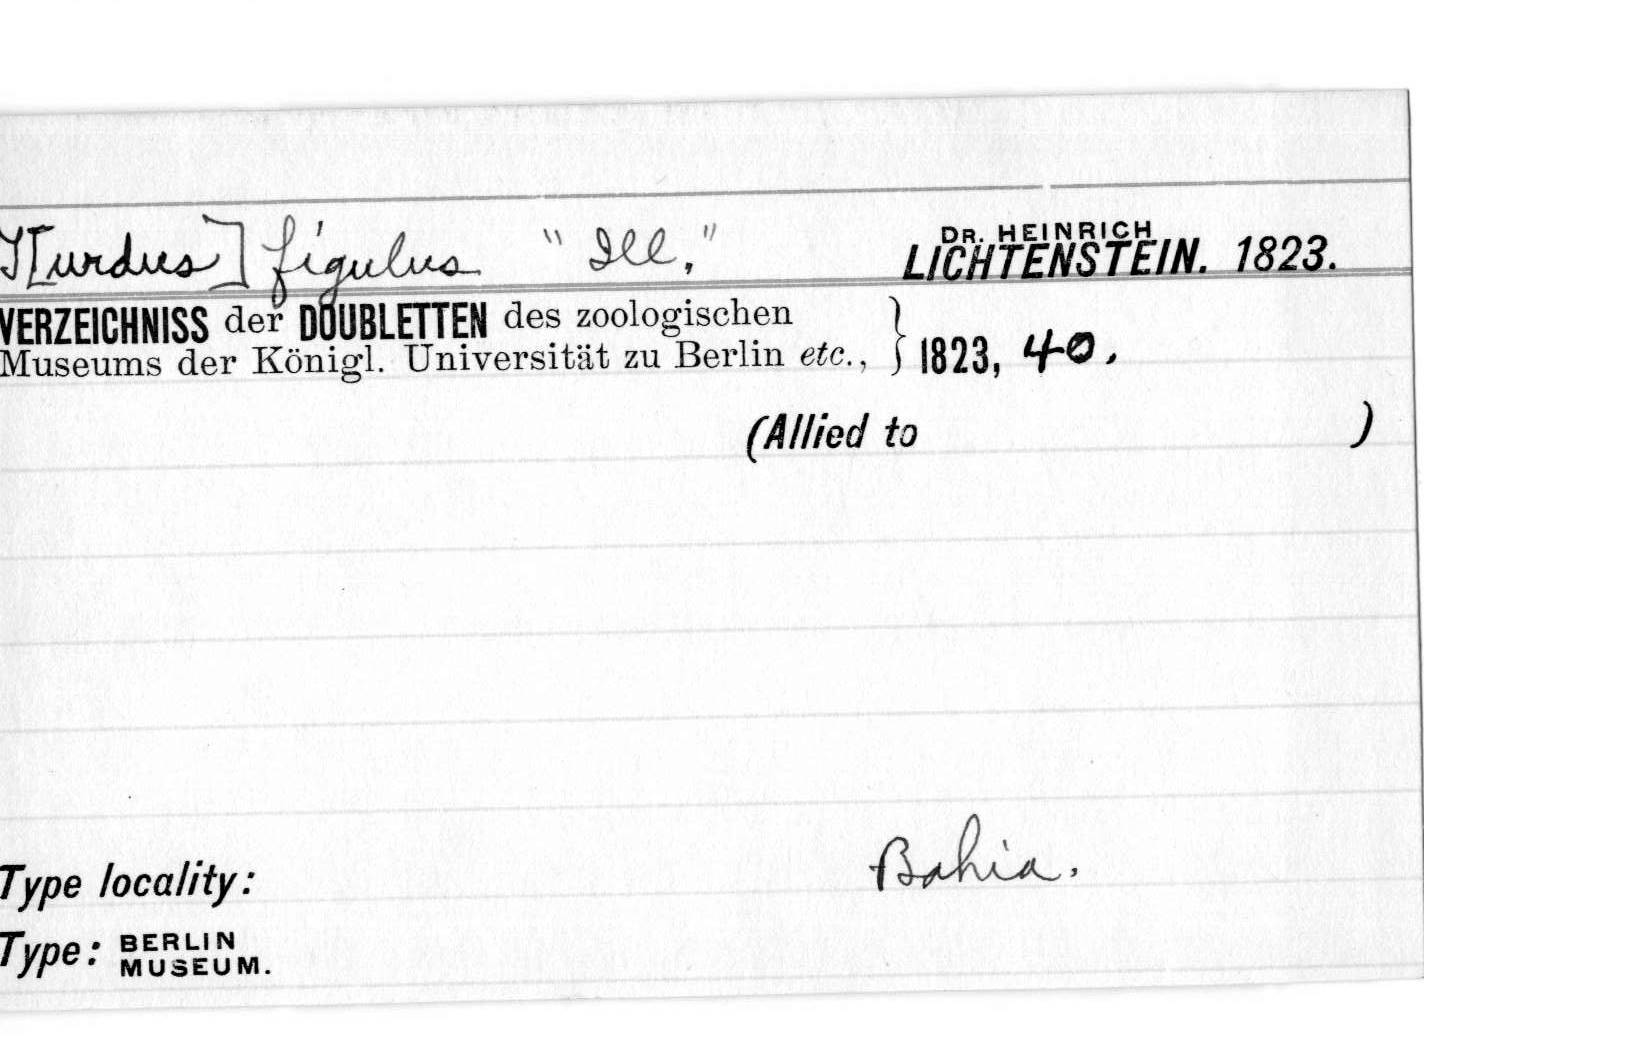 T[urdus] figulus "Ill." DR. HEINRICH LICHTENSTEIN. 1823.
VERZEICHNISS der DOUBLETTEN des zoologischen
Museums der Königl. Universität zu Berlin etc., } 1823, 40.
(Allied to )
Type locality: Bahia.
Type: BERLIN MUSEUM.